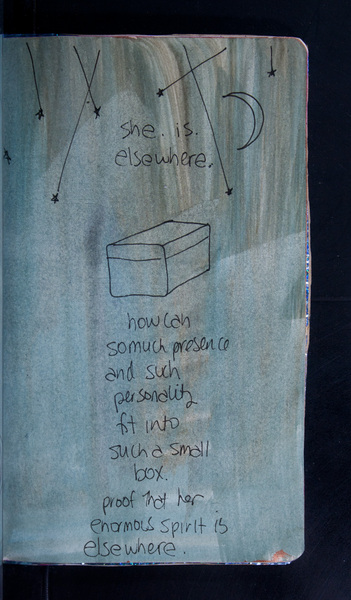 she. is.
elsewhere.
how can
so much presence
and such
personality
fit into
such a small
box.
proof that her
enormous spirit is
elsewhere.